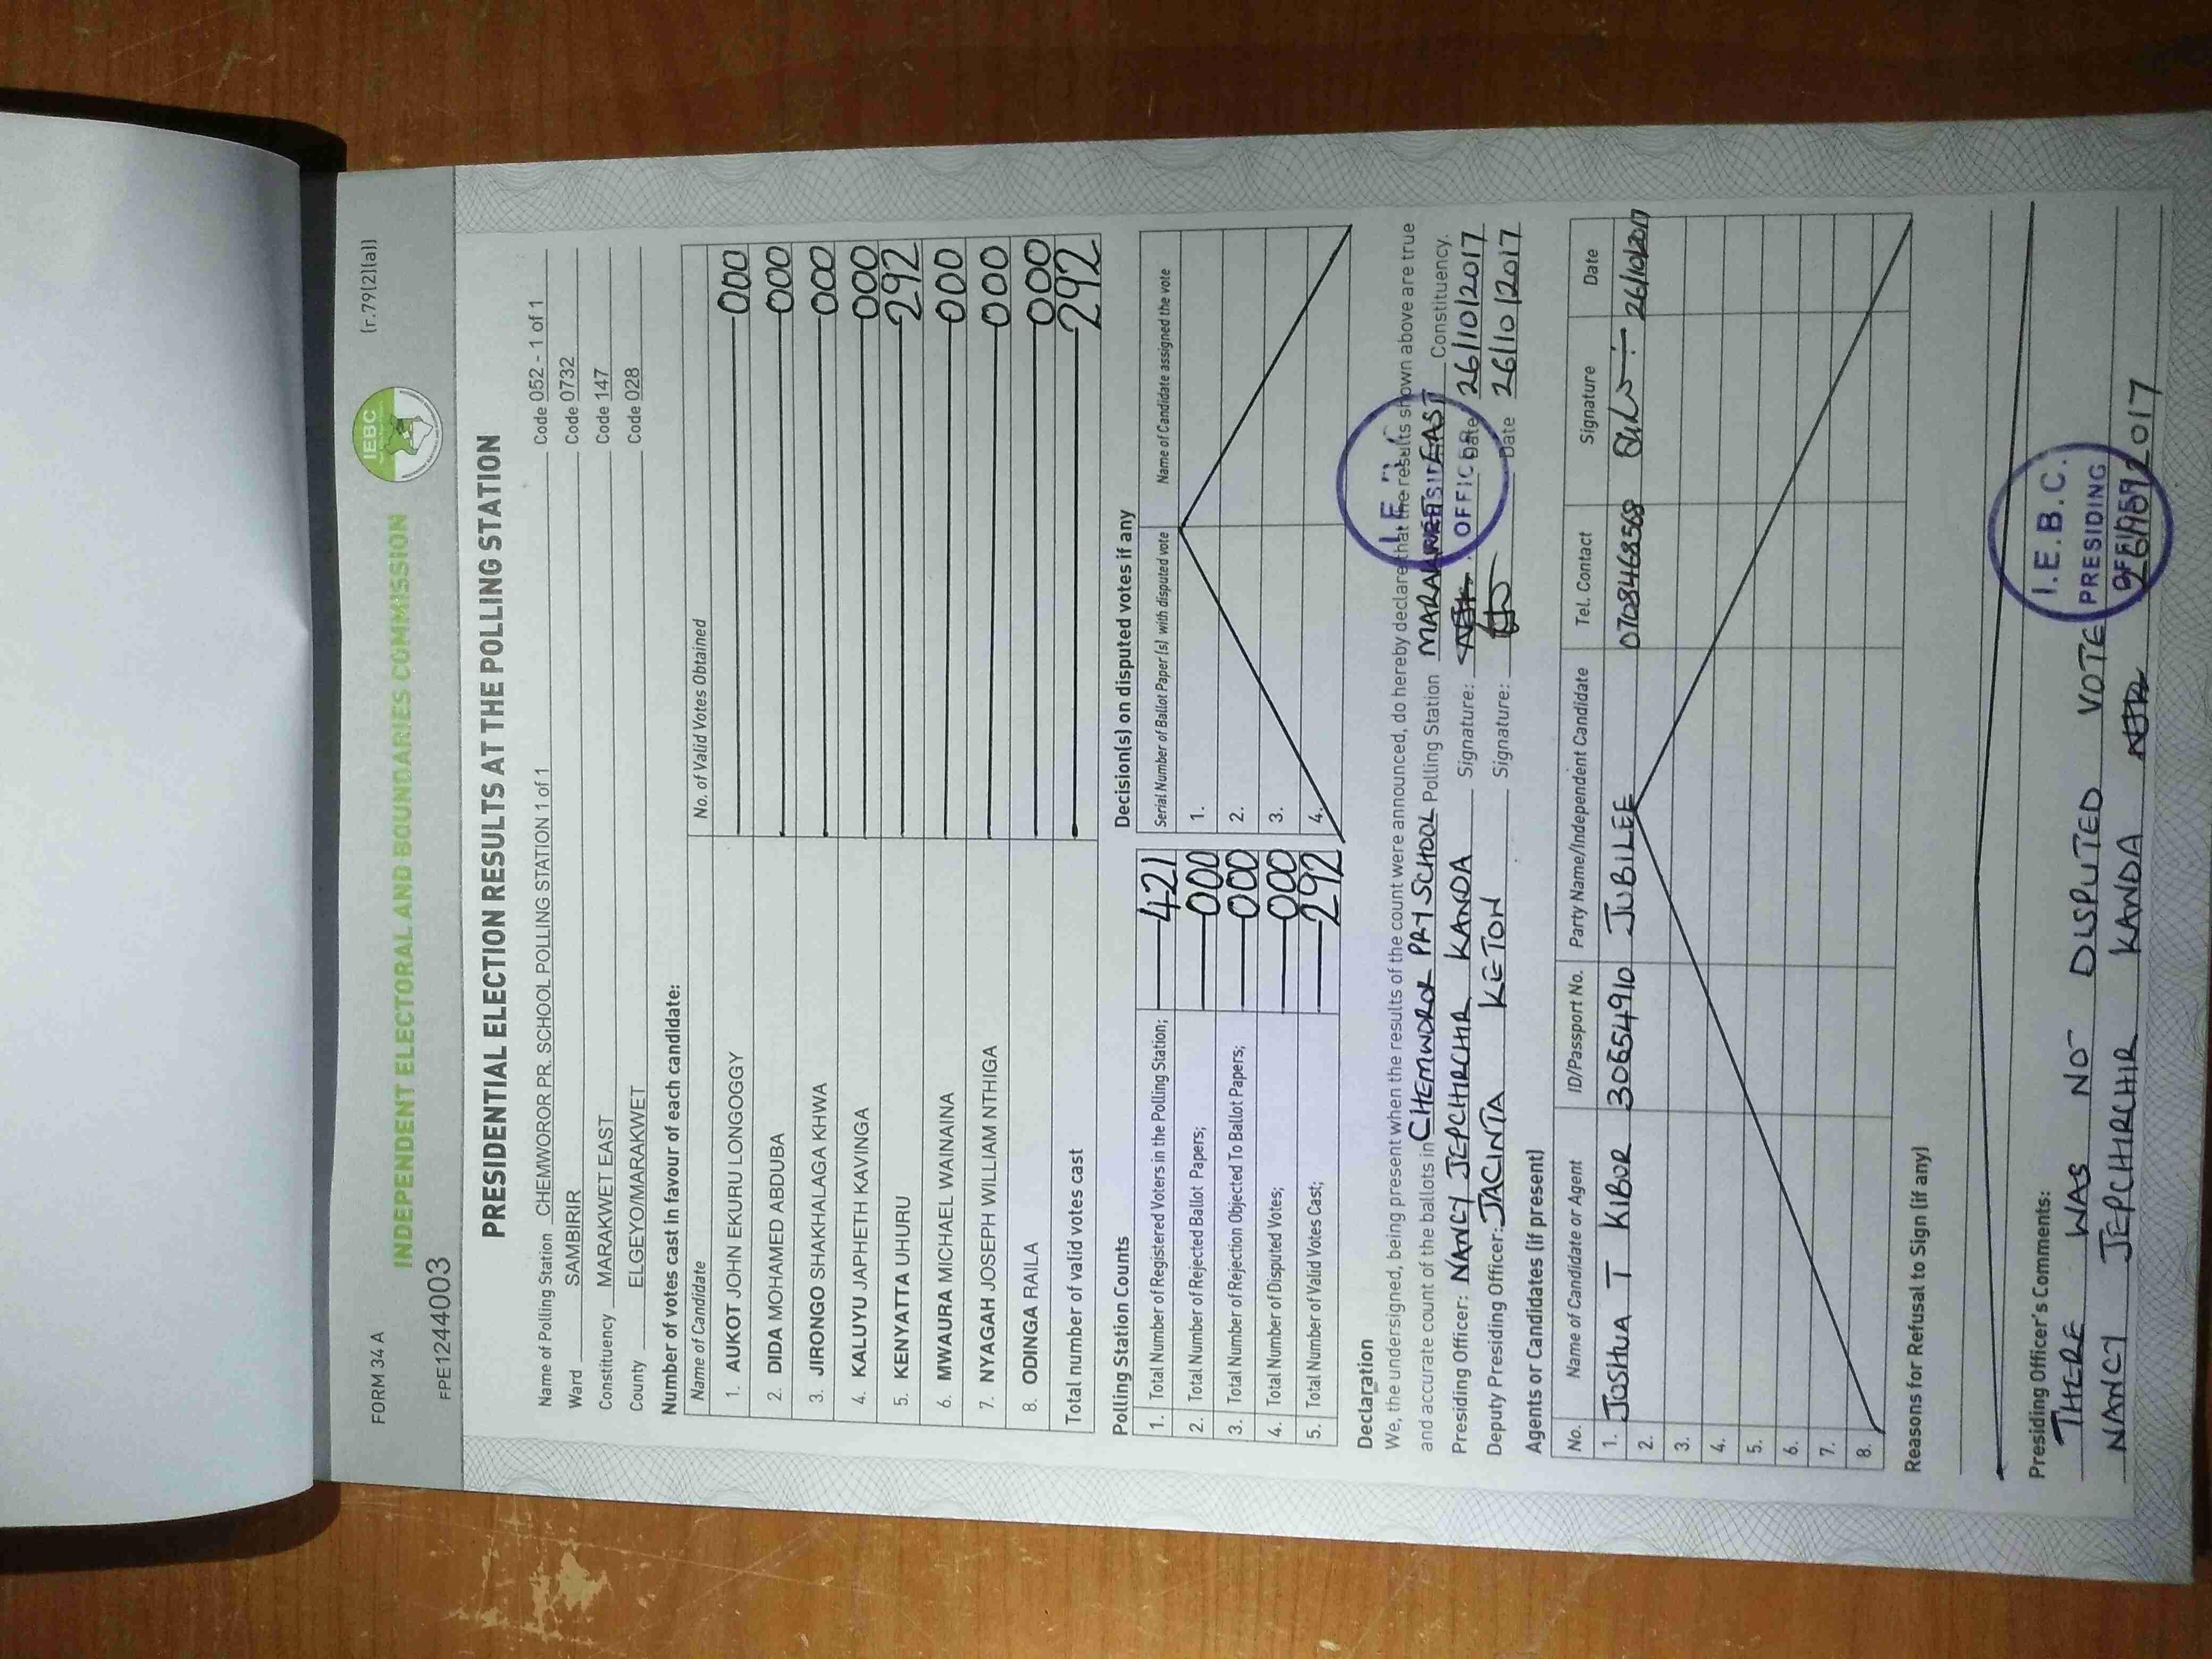 FORM 34 A
(r.79(2)(a))
IEBC
INDEPENDENT ELECTORAL AND BOUNDARIES COMMISSION
FPE1244003
PRESIDENTIAL ELECTION RESULTS AT THE POLLING STATION
Name of Polling Station CHEMWOROR PR. SCHOOL POLLING STATION 1 of 1 Code 052 - 1 of 1
Ward SAMBIRIR Code 0732
Constituency MARAKWET EAST Code 147
County ELGEYO/MARAKWET Code 028
Number of votes cast in favour of each candidate:
Name of Candidate No. of Valid Votes Obtained
1. AUKOT JOHN EKURU LONGOGGY 000
2. DIDA MOHAMED ABDUBA 000
3. JIRONGO SHAKHALAGA KHWA 000
4. KALUYU JAPHETH KAVINGA 000
5. KENYATTA UHURU 292
6. MWAURA MICHAEL WAINAINA 000
7. NYAGAH JOSEPH WILLIAM NTHIGA 000
8. ODINGA RAILA 000
Total number of valid votes cast 292
Polling Station Counts
1. Total Number of Registered Voters in the Polling Station; 421
2. Total Number of Rejected Ballot Papers; 000
3. Total Number of Rejection Objected To Ballot Papers; 000
4. Total Number of Disputed Votes; 000
5. Total Number of Valid Votes Cast; 292
Decision(s) on disputed votes if any
Serial Number of Ballot Paper (s) with disputed vote Name of Candidate assigned the vote
1.
2.
3.
4.
Declaration
We, the undersigned, being present when the results of the count were announced, do hereby declare that the results shown above are true
and accurate count of the ballots in CHEMWOROR PRY SCHOOL Polling Station MARAKWET EAST Constituency.
Presiding Officer: NANCY JEPCHIRCHIR KANDA Signature: Date 26/10/2017
Deputy Presiding Officer: JACINTA KETON Signature: Date 26/10/2017
Agents or Candidates (if present)
No. Name of Candidate or Agent ID/Passport No. Party Name/Independent Candidate Tel. Contact Signature Date
1. JOSHUA T KIBOR 30654910 JUBILEE 0708468568 26/10/2017
2.
3.
4.
5.
6.
7.
8.
Reasons for Refusal to Sign (if any)
Presiding Officer's Comments:
THERE WAS NO DISPUTED VOTE
NANCY JEPCHIRCHIR KANDA 2017
I.E.B.C.
PRESIDING